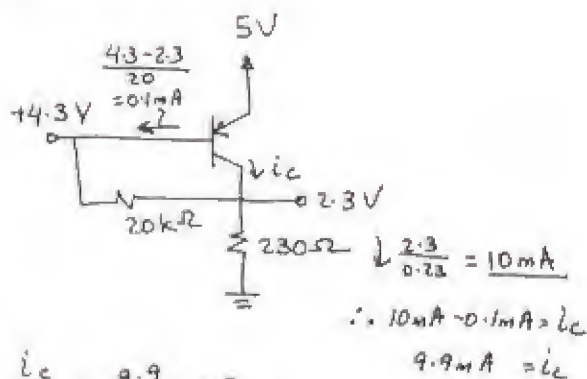 5V
4.3-2.3
20
=0.1mA
+4.3V
ic
20kΩ
2.3V
230Ω
2.3
0.23
= 10mA
∴ 10mA-0.1mA=ic
9.9mA =ic
ic
9.9